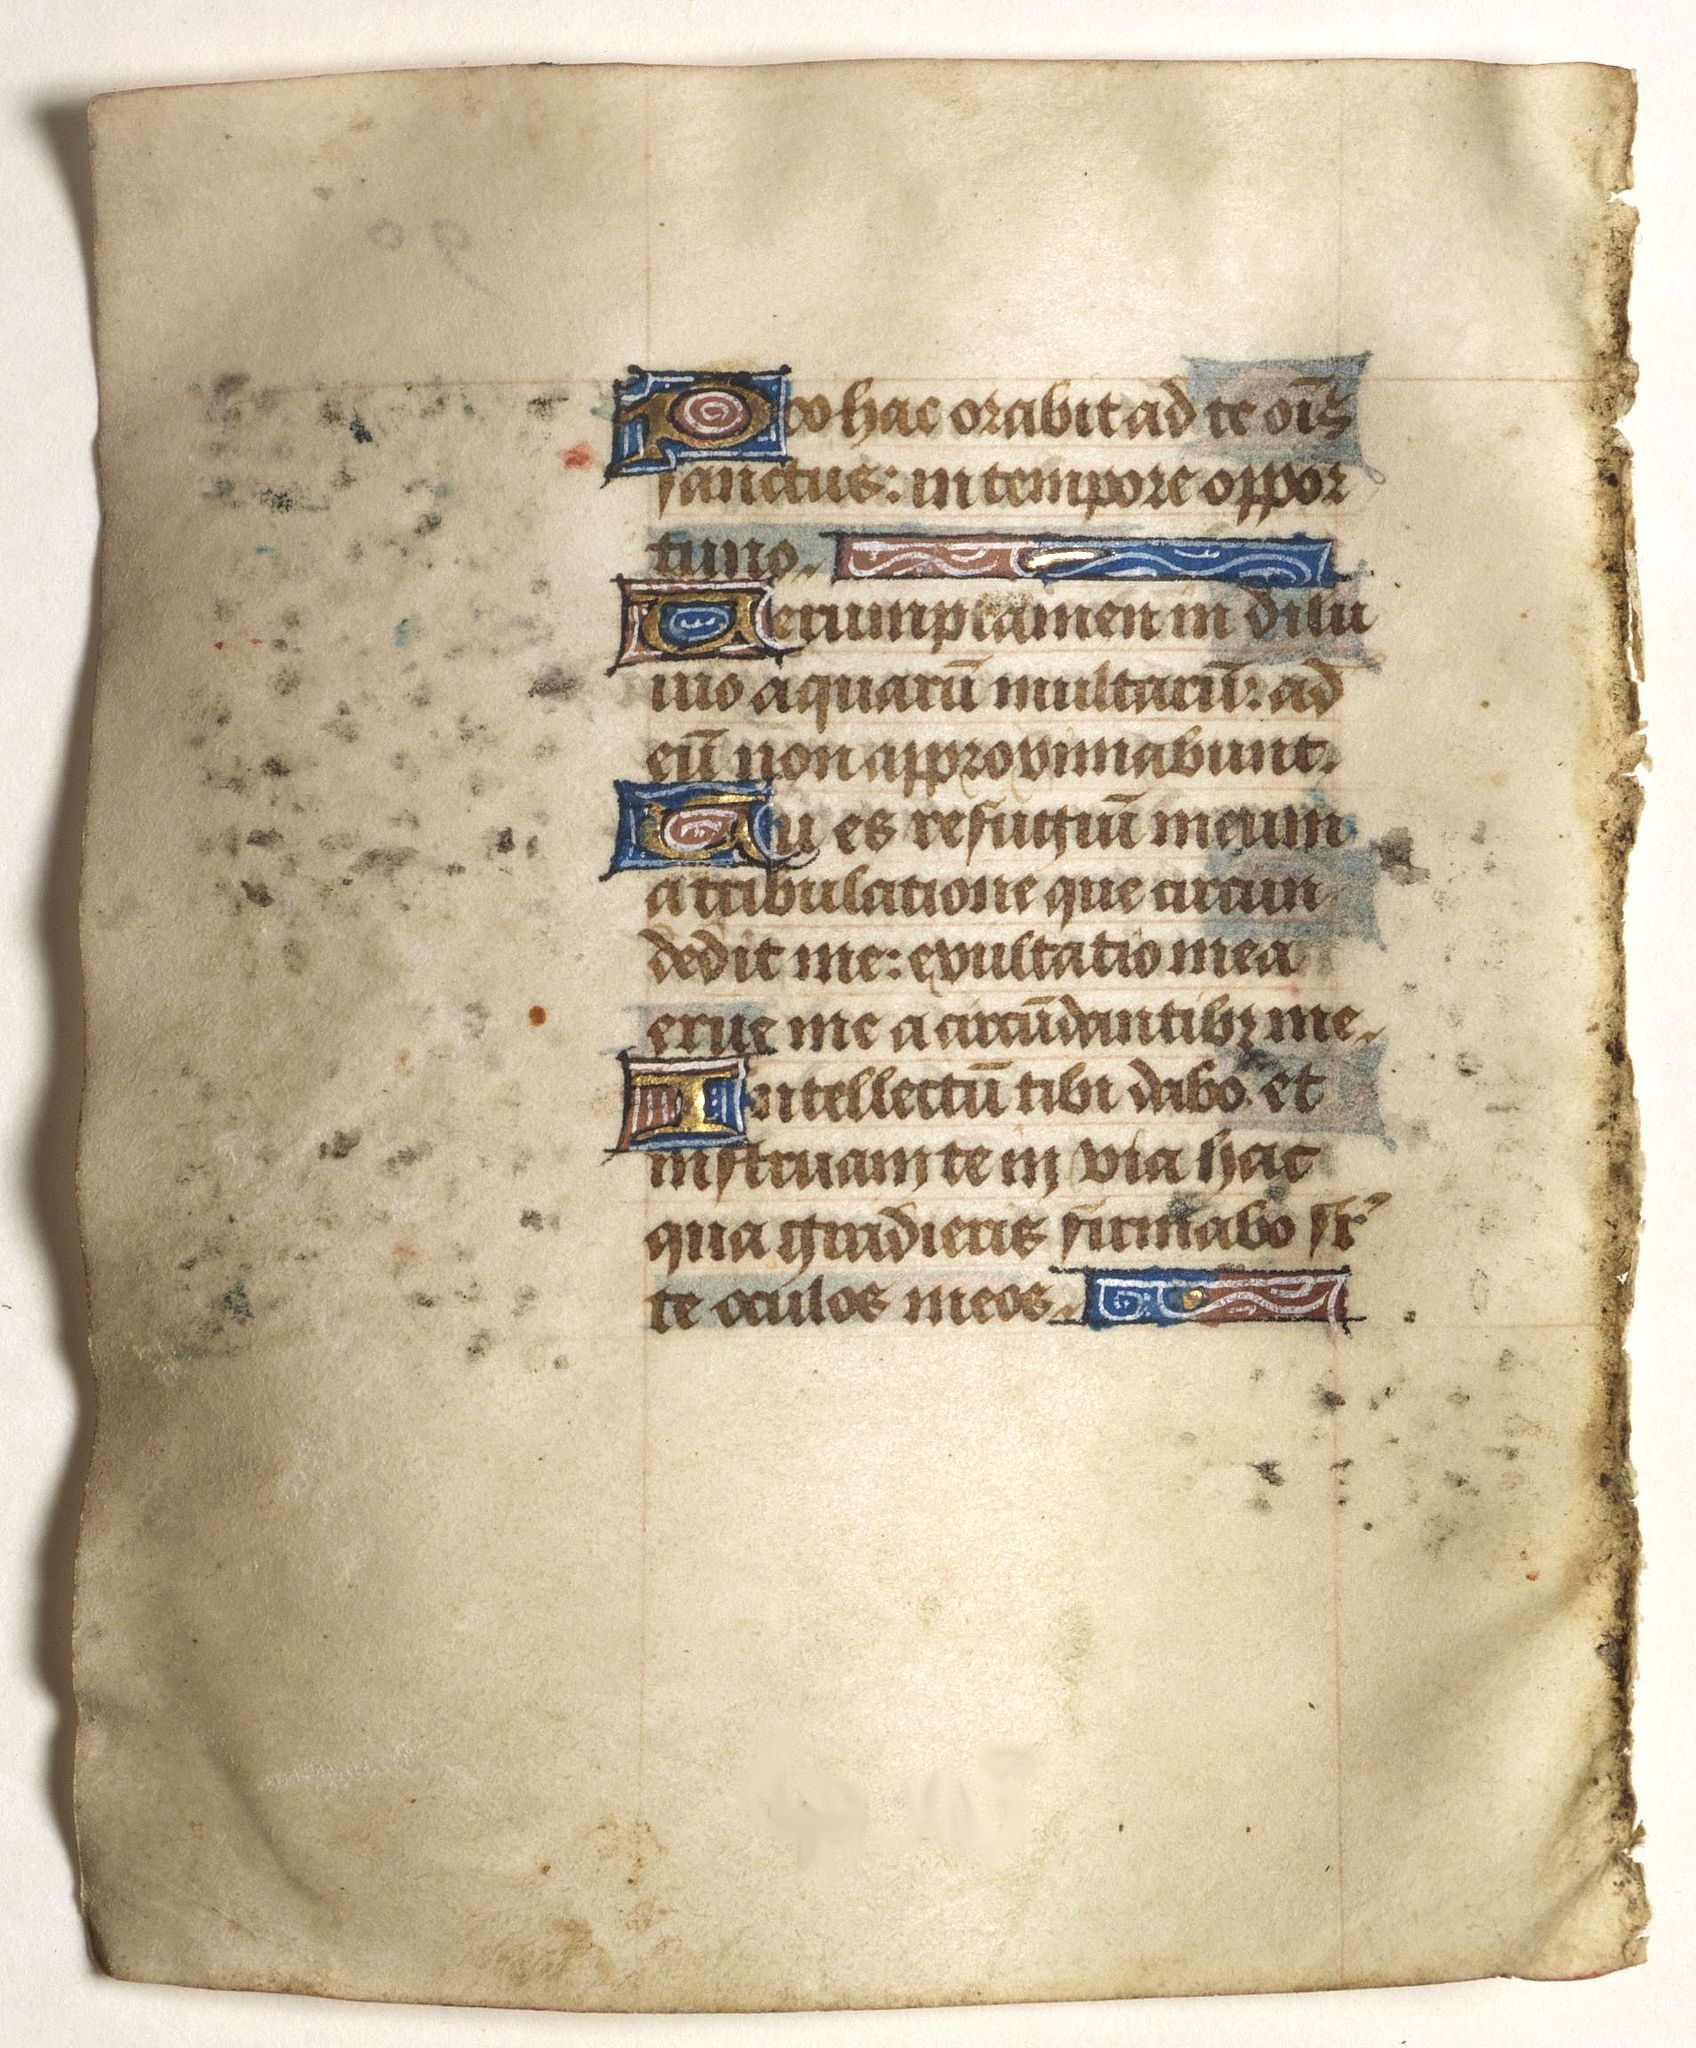 Pro hac orabit ad te oīs
sanctus: in tempore oppor
tuno.
Verumptamen in dilu
uio aquarū multarū: ad
eū non approximabunt.
Tu es refugiū meum
a tribulatione que circun
dedit me: exultatio mea
erue me a circūdantibꝫ me.
Intellectū tibi dabo. et
instruam te in via hac
qua gradieris firmabo sr̄
te oculos meos.